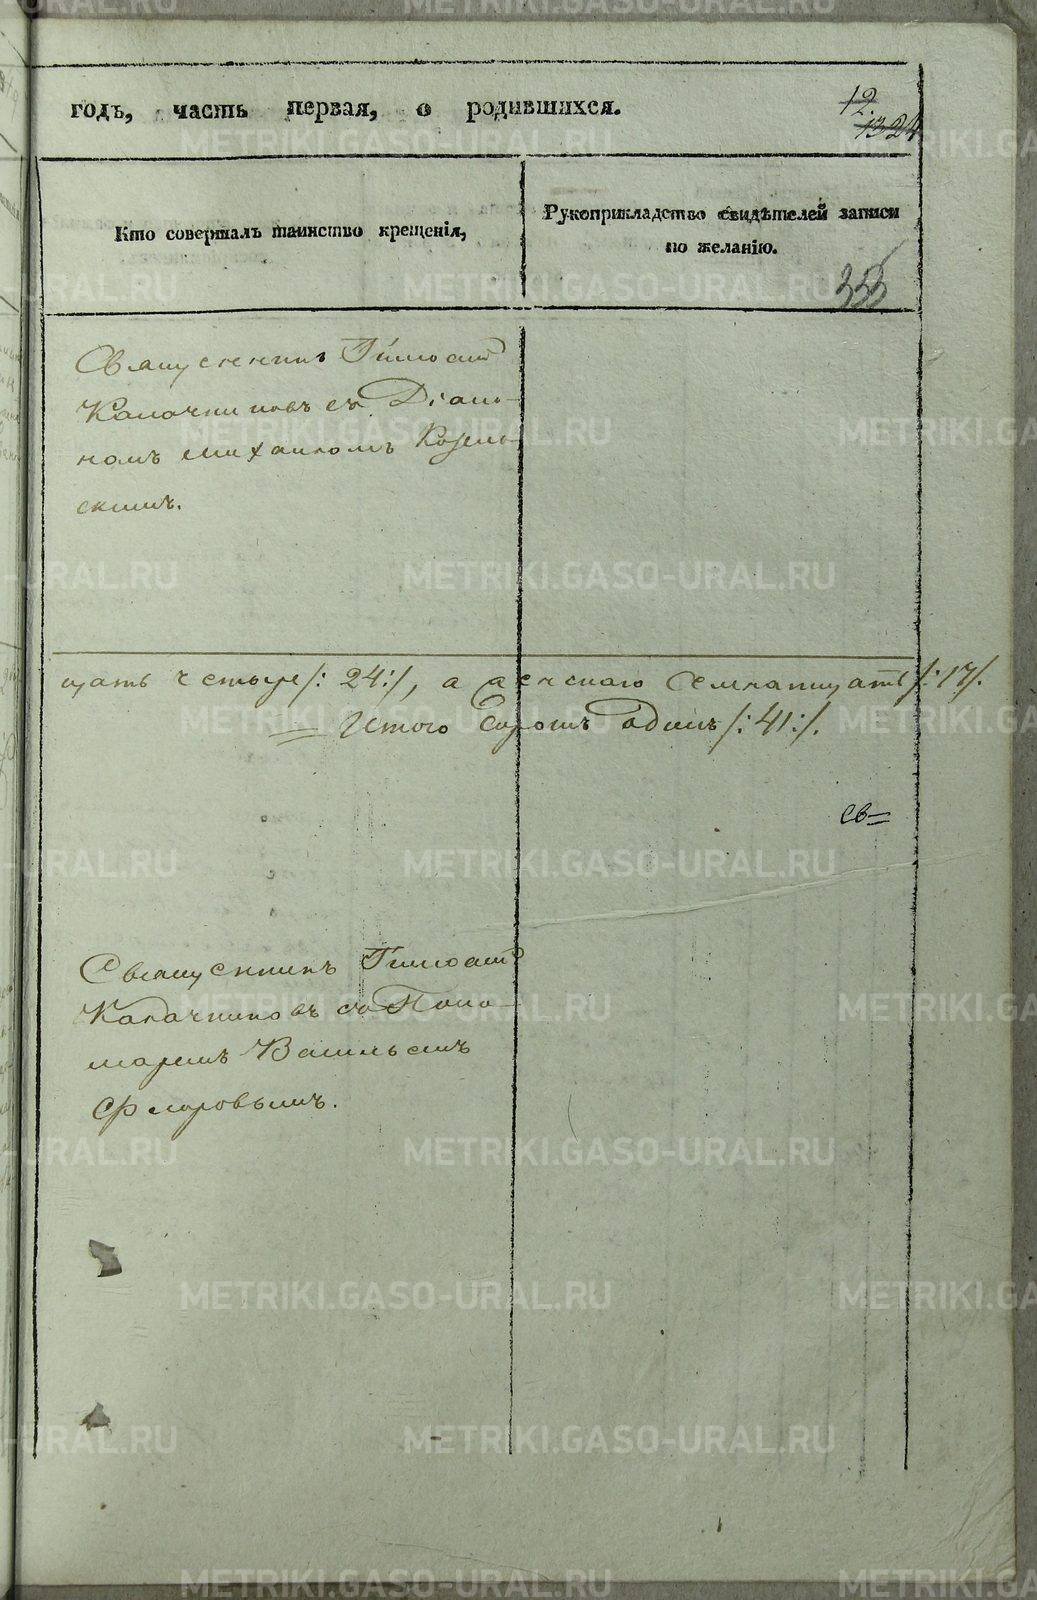 годъ, часть первая, о родившихся.
12.
1324
Кто совершалъ таинство крещенія,
Рукоприкладство свидѣтелей записи
по желанію.
355
Священникъ Тимоѳей
Калачниковъ съ Діако-
номъ Михаиломъ Козель-
скимъ.
цать четыре /: 24:/, а женскаго Семнатцать /: 17/.
Итого Сорокъ одинъ /: 41:/.
св=
Священникъ Тимоѳей
Калачниковъ съ Поно-
маремъ Васильемъ
Флоровымъ.
METRIKI.GASO-URAL.RU